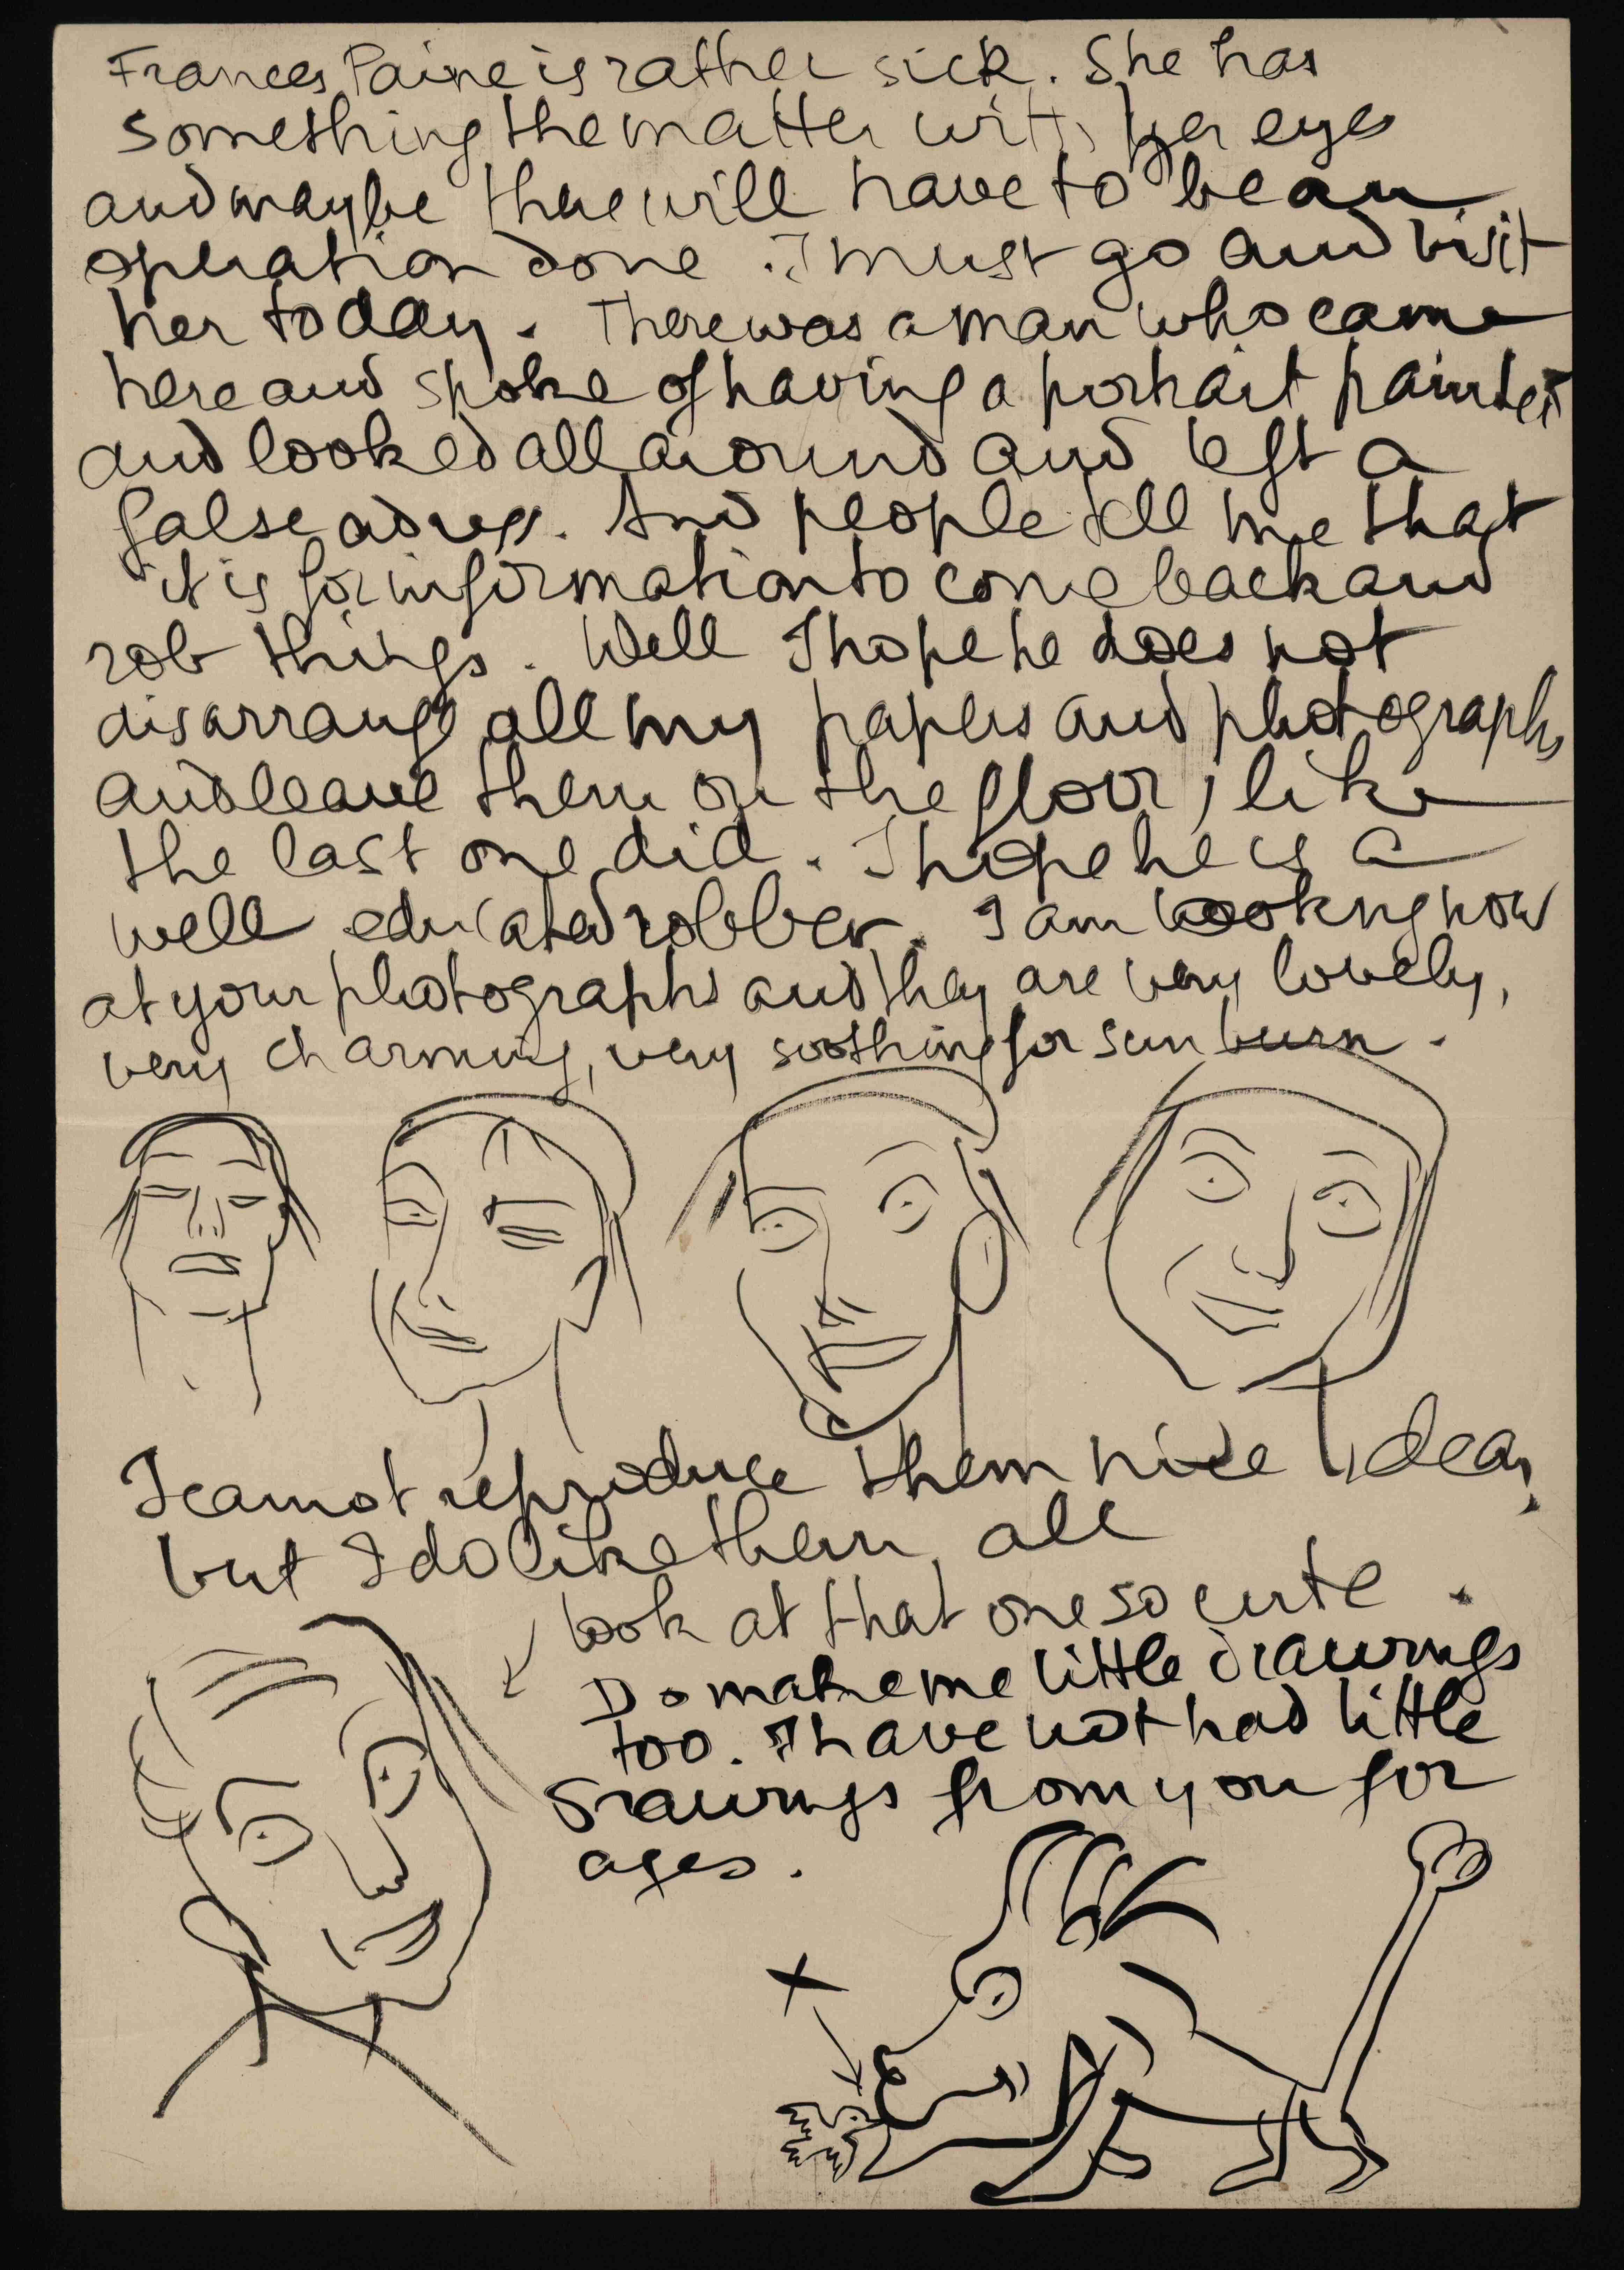 Frances Paine is rather sick. She has
something the matter with her eyes
and maybe there will have to be an
operation done. I must go and visit
her today. There was a man who came
here and spoke of having a portrait painted
and looked all around and left a
false adress. And people tell me that
it is for information to come back and
rob things. Well I hope he does not
disarrange all my papers and photographs
and leave them on the floor, like
the last one did. I hope he is a
well educated robber. I am looking now
at your photographs and they are very lovely,
very charming, very soothing for sun burn.
I cannot reproduce them nice, dear,
but I do like them, all
look at that one so cute.
Do make me little drawings
too. I have not had little
drawings from you for
ages.
X